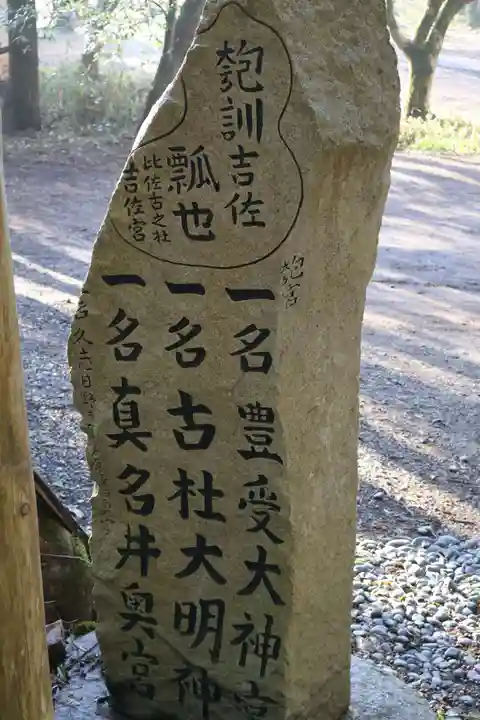 匏訓吉佐
瓢也
比佐古之社
吉佐宮
匏宮
一名豊受大神宮
一名古杜大明神
一名真名井奥宮